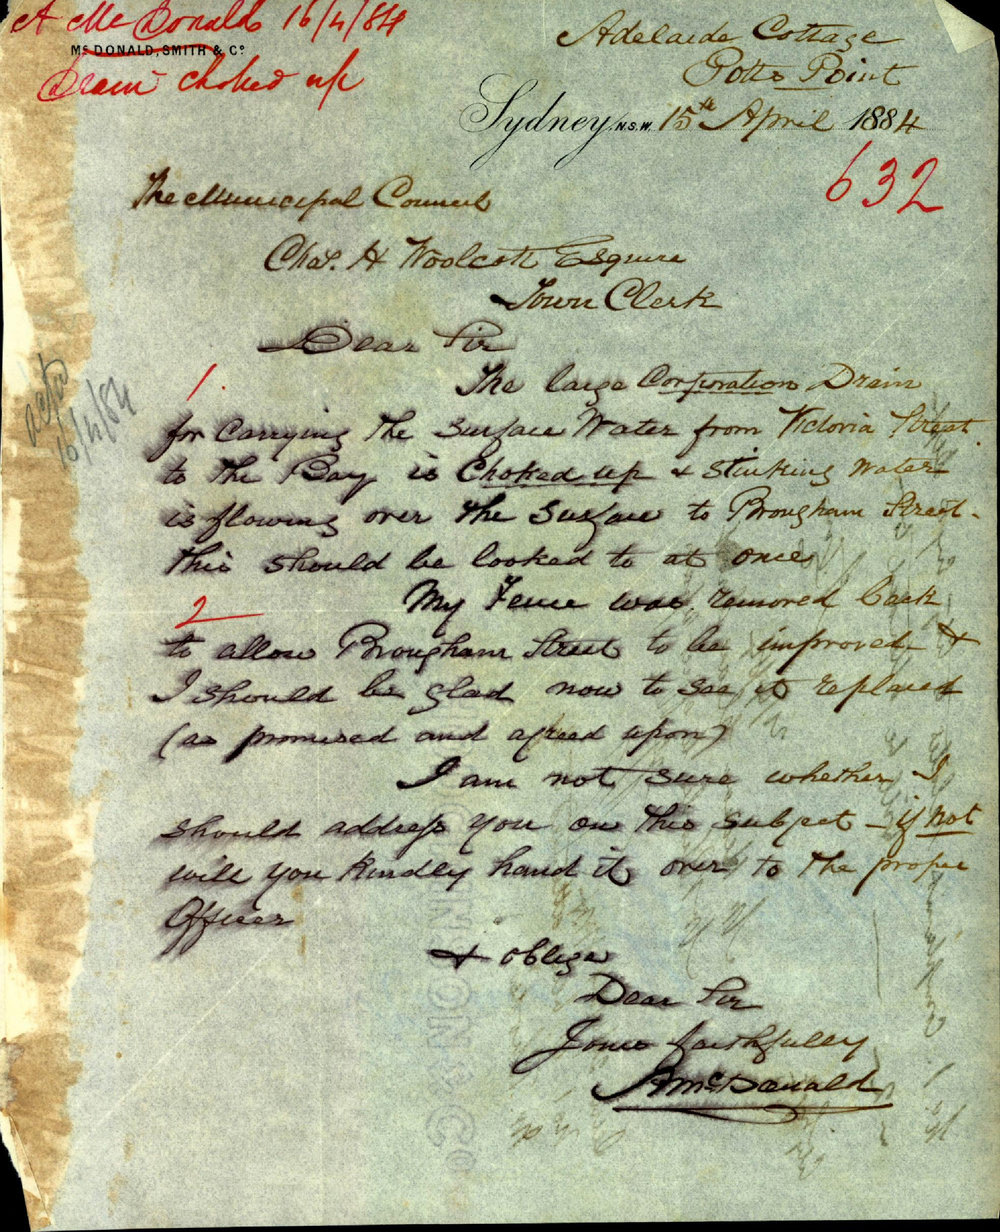 A McDonald 16/4/84
McDONALD, SMITH & Co
Drain choked up
Adelaide Cottage
Potts Point
Sydney, N.S.W. 15th April 1884
632
The Municipal Council
Chas. H Woolcott Esquire
Town Clerk
Dear Sir
1. The large Corporation Drain
for carrying the surface Water from Victoria Street
to the Bay is Choked up & stinking water
is flowing over the surface to Brougham Street.
this should be looked to at once
16/4/84
2 My Fence was removed back
to allow Brougham Street to be improved &
I should be glad now to see it replaced
(as promised and agreed upon)
I am not sure whether I
should address you on this subject - if not
will you kindly hand it over to the proper
Officer
& oblige
Dear Sir
Yours faithfully
A McDonald